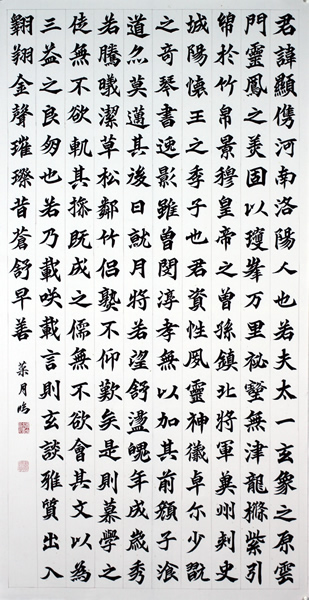 君諱顯儁河南洛陽人也若夫太一玄象之原雲
門靈鳳之美固以瓊峯万里祕壑無津龍檦紫引
綿於竹帛景穆皇帝之曾孫鎮北將軍冀州刺史
城陽懷王之季子也君資性夙靈神儀卓尔少翫
之奇琴書逸影雖曾閔淳孝無以加其前顏子湌
道亦莫邁其後日就月將若望舒盪魄年成歲秀
若騰曦潔草松鄰竹侶熟不仰歎矣是則慕學之
徒無不欲軌其操既成之儒無不欲會其文以為
三益之良朋也若乃載咲載言則玄談雅質出入
翱翔金聲璀璨昔蒼舒早善